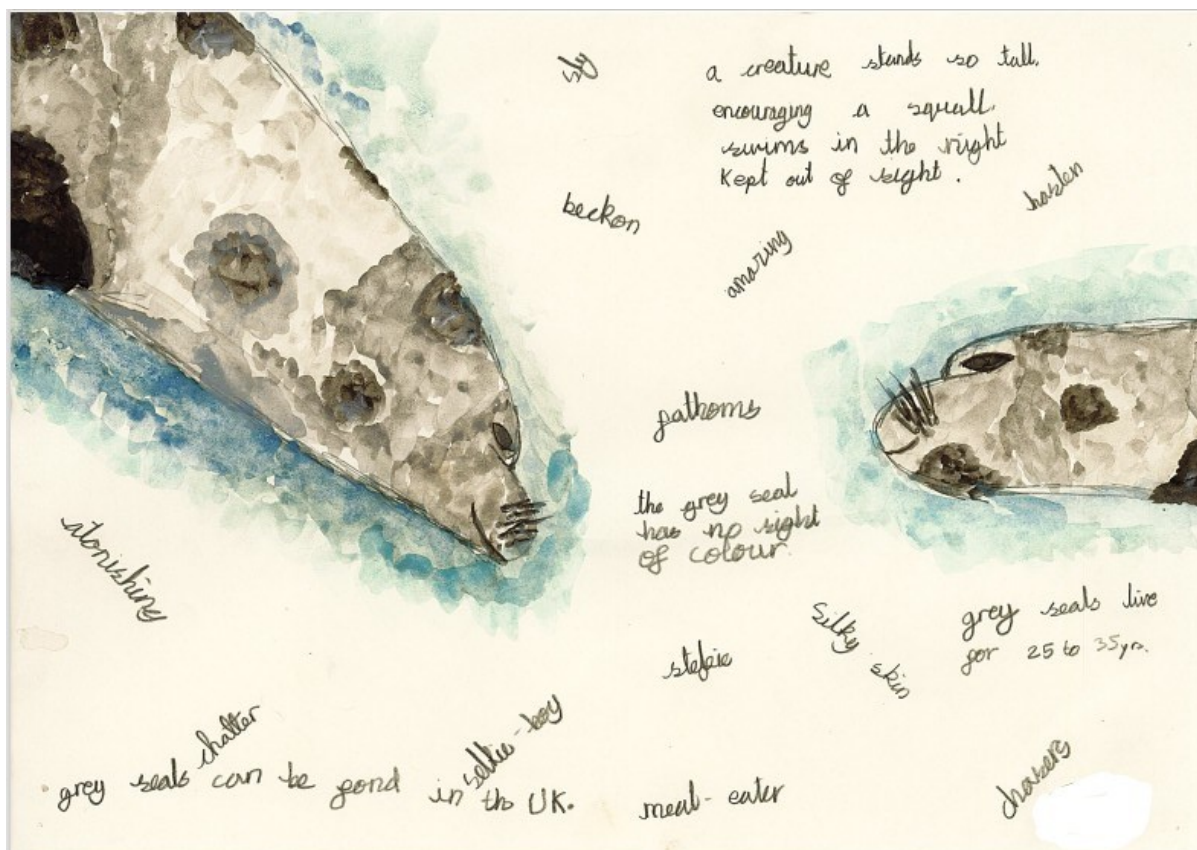 sly
a creature stands so tall.
encouraging a squall.
swims in the night
Kept out of sight.
hasten
beckon
amazing
fathoms
the grey seal
has no sight
of colour
atonishing
silky skin
grey seals live
for 25 to 35yrs.
chatter
selkie-boy
grey seals can be fond in th UK.
meat-eater
chasers